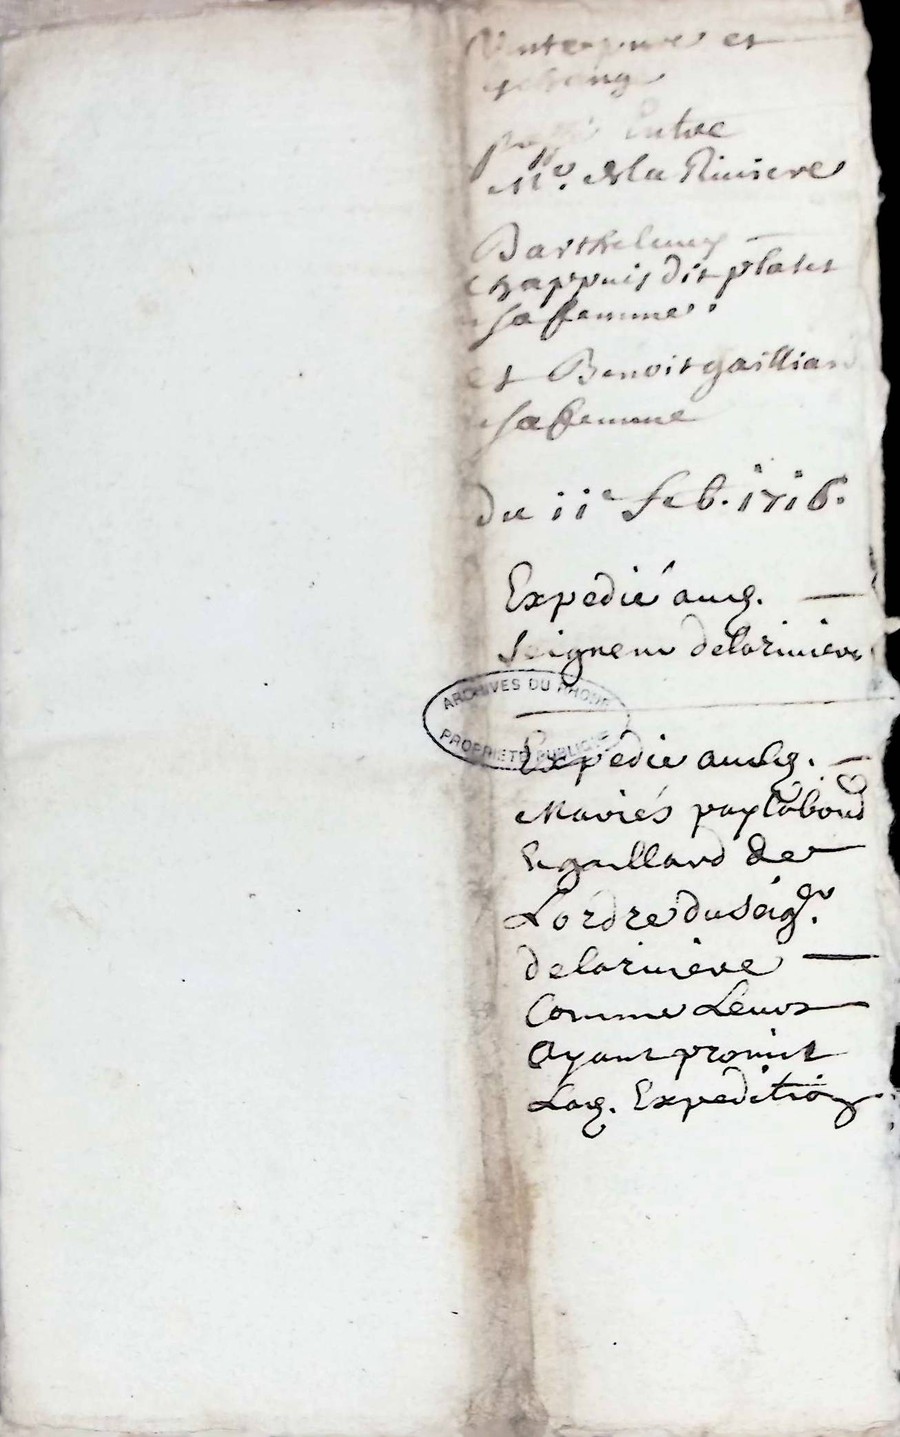 Vente pure et
eschange
passé Entre
Mr. de la Riviere
Barthelemy
chappuis dit platet
sa femme
et Benoit gaillian
sa femme
du 11e feb. 1716.
Expedié aud.
seigneur de la riviere
ARCHIVES DU RHONE
PROPRIETE PUBLIQUE
Expedié aud.
Mariés
gaillard de
Lordre du Seigr.
de la riviere
Comme Leurs
Ayant promit
Lad. Expedition